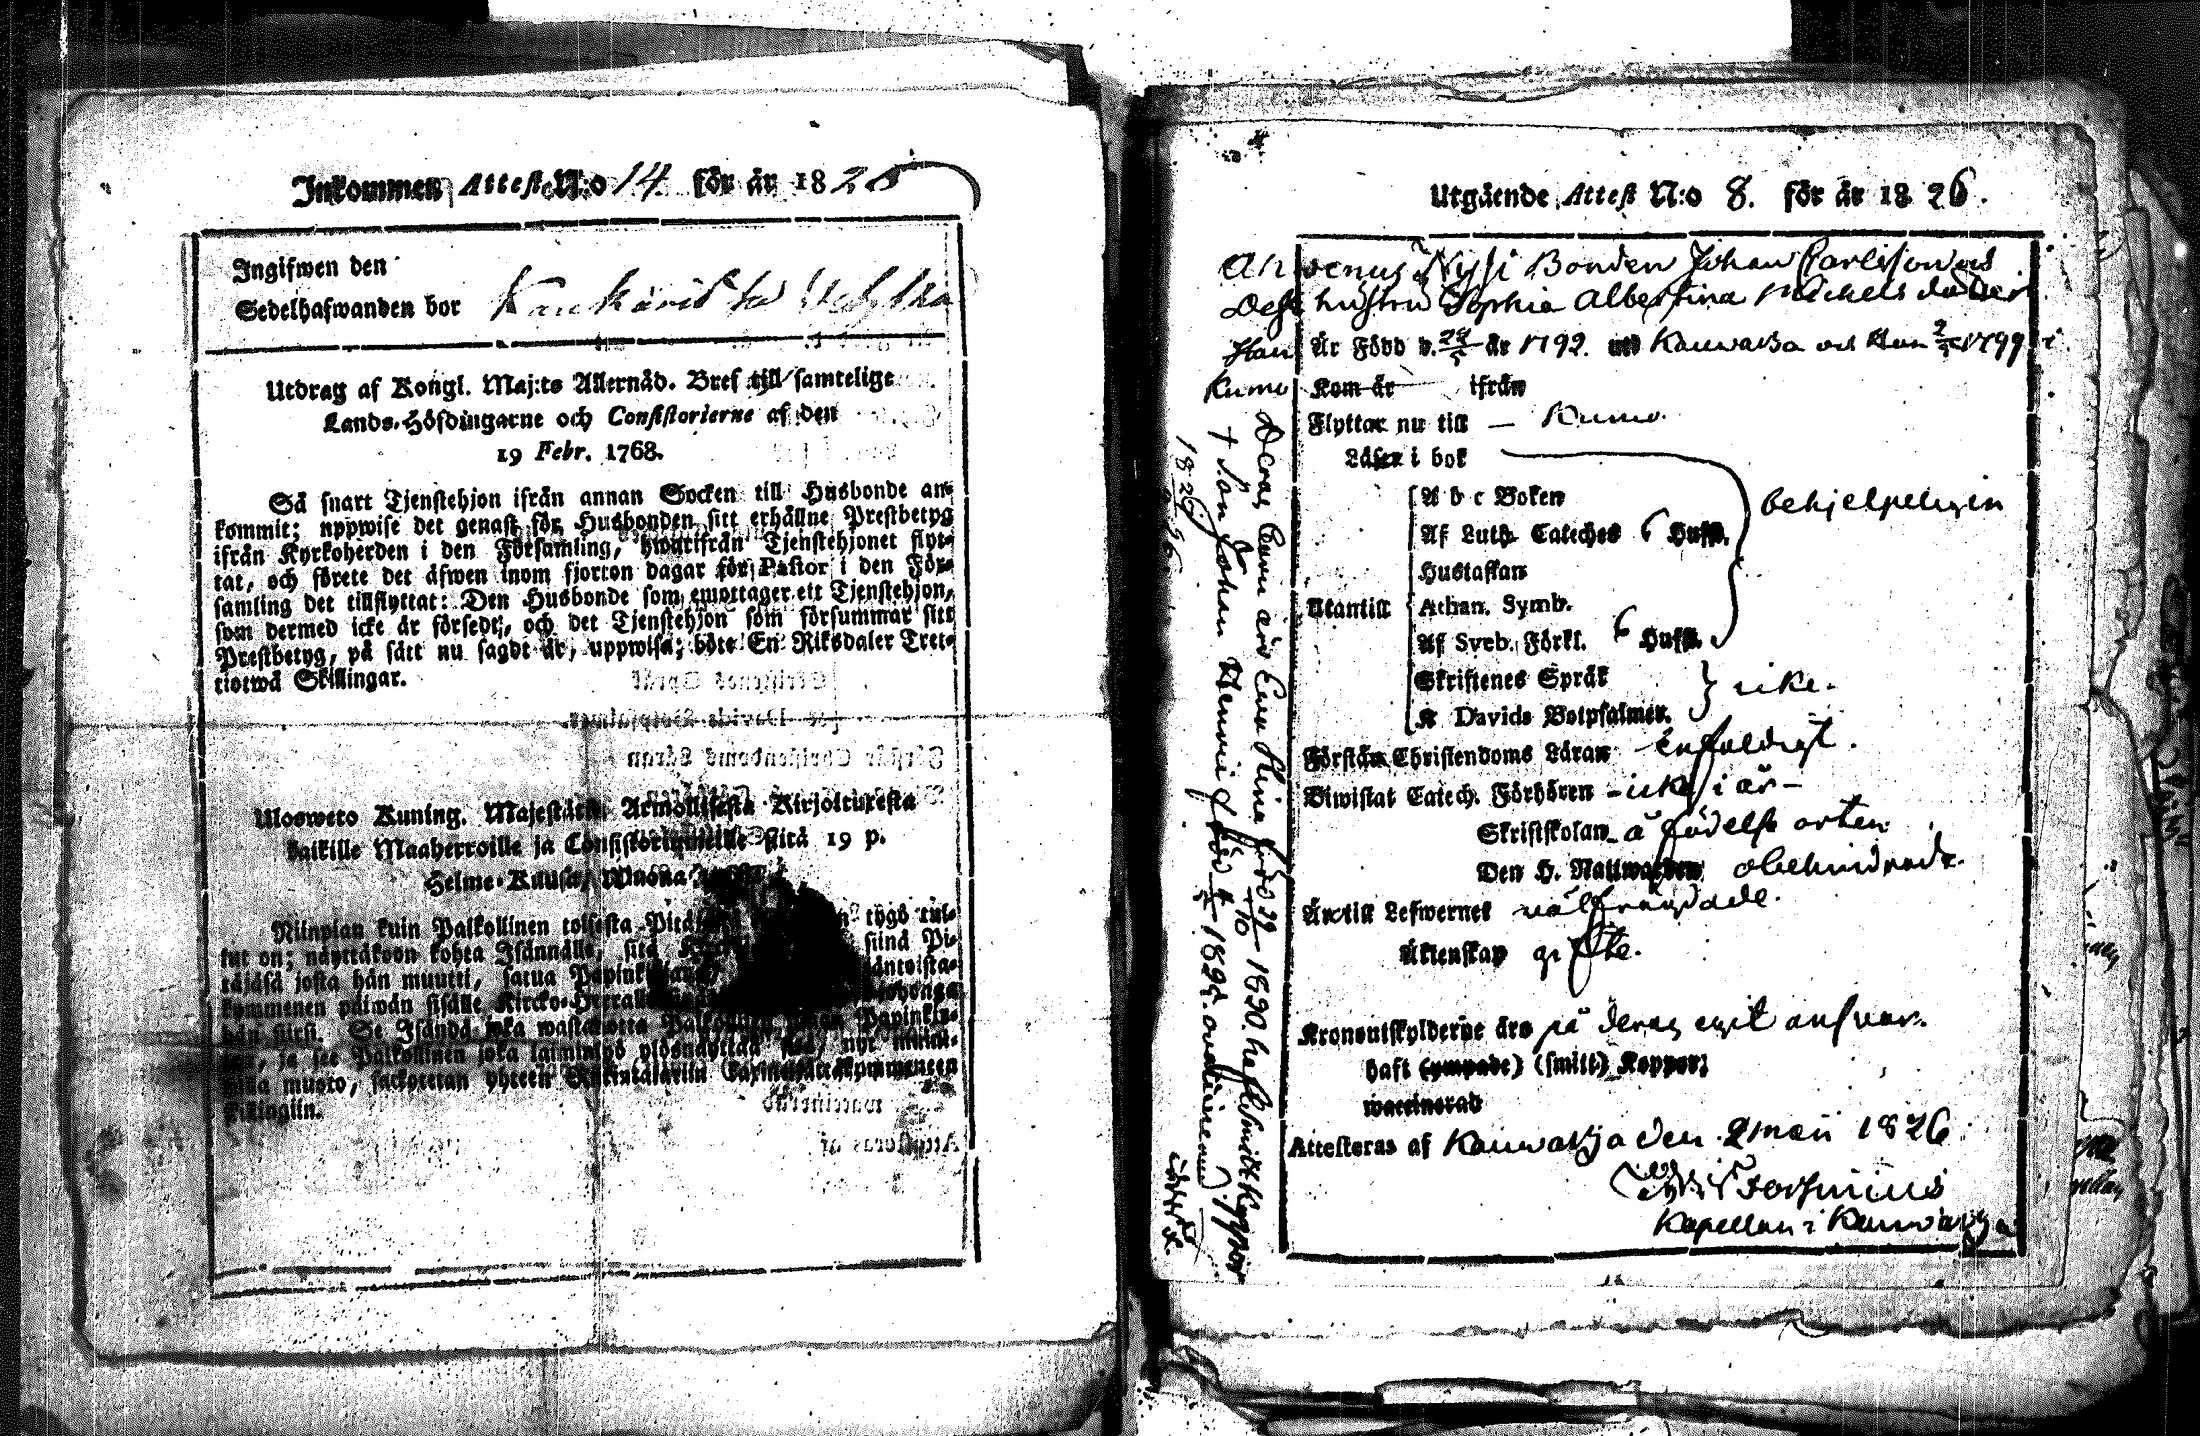 Inkommen Attest N:o 14. för år 1826
Ingifwen den
Sedelhafwanden bor
Utdrag af Kongl. Maj:ts Allernåd. Bref till samtelige
Lands-Höfdingarne och Consistorierne af den
19 Febr. 1768.
Så snart Tjenstehjon ifrån annan Socken till Husbonde an-
kommit; uppwise det genast för Husbonden sitt erhållne Prestbetyg
ifrån Kyrkoherden i den Församling, hwarifrån Tjenstehjonet flyt-
tat, och förete det äfwen inom fjorton dagar för Pastor i den För-
samling det tillflyttat: Den Husbonde som emottager ett Tjenstehjon,
som dermed icke är försedt, och det Tjenstehjon som försummar sitt
Prestbetyg, på sätt nu sagdt är, uppwisa; böte En Riksdaler Tret-
tiotwå Skillingar.
Ulosweto Kuning. Majestätin Armollisesta Kirjoituxesta
kaikille Maaherroille ja Consistoriumeille siitä 19 p.
Helme-Kuusa, Wuonna
Niinpian kuin Palkollinen toisesta Pitä tygö tul-
lut on; näyttäköön kohta Isännälle, sitä siinä Pi-
täjäsä josta hän muutti, saatua Papinkirjaa
kymmenen päiwän sisälle Kircko-Herralle
hän siirsi. Se Isändä joka wastaanotta Palkollisen ilman Papinkir-
jan, ja see Palkollinen joka laiminlyö ylösnäyttää sitä, nyt mainit-
tulla muoto, sackotetan yhteen Riikintalariin
Killingiin.
Utgående Attest N:o 8. för år 1826.
Bonden Johan Carlsson och
Dess hustru Sophia Albertina Michels dotter
Han Är Född d. 24/5 år 1792. och Hon 1799 i
Kumo Kom år ifrån
Flyttar nu till — Kumo.
Läser i bok
A b c Boken
behjelpeligen
Af Luth. Cateches 6 Hufst.
Hustaflan
Utantill Athan. Symb.
Af Sveb. Förkl. 6 Hufst.
Skriftenes Språk
icke.
K Davids Botpsalmer.
Förstår Christendoms Läran enfaldigt.
Biwistat Catech. Förhören - icke i år -
Skriftskolan å födelse orten
Den H. Nattwarden obehindrade.
Är till Lefwernet wälfrägdade.
Äktenskap gifte.
Kronoutskylderne äro på deras eget answar.
haft (ympade) (smitt) Koppor;
waccinerad
Attesteras af den 2 maii 1826
Kapellan i
Deras Barn äro Eva Stina född 29/10 1820. haft smitt Koppor
† Son Johan Henric född 1825.